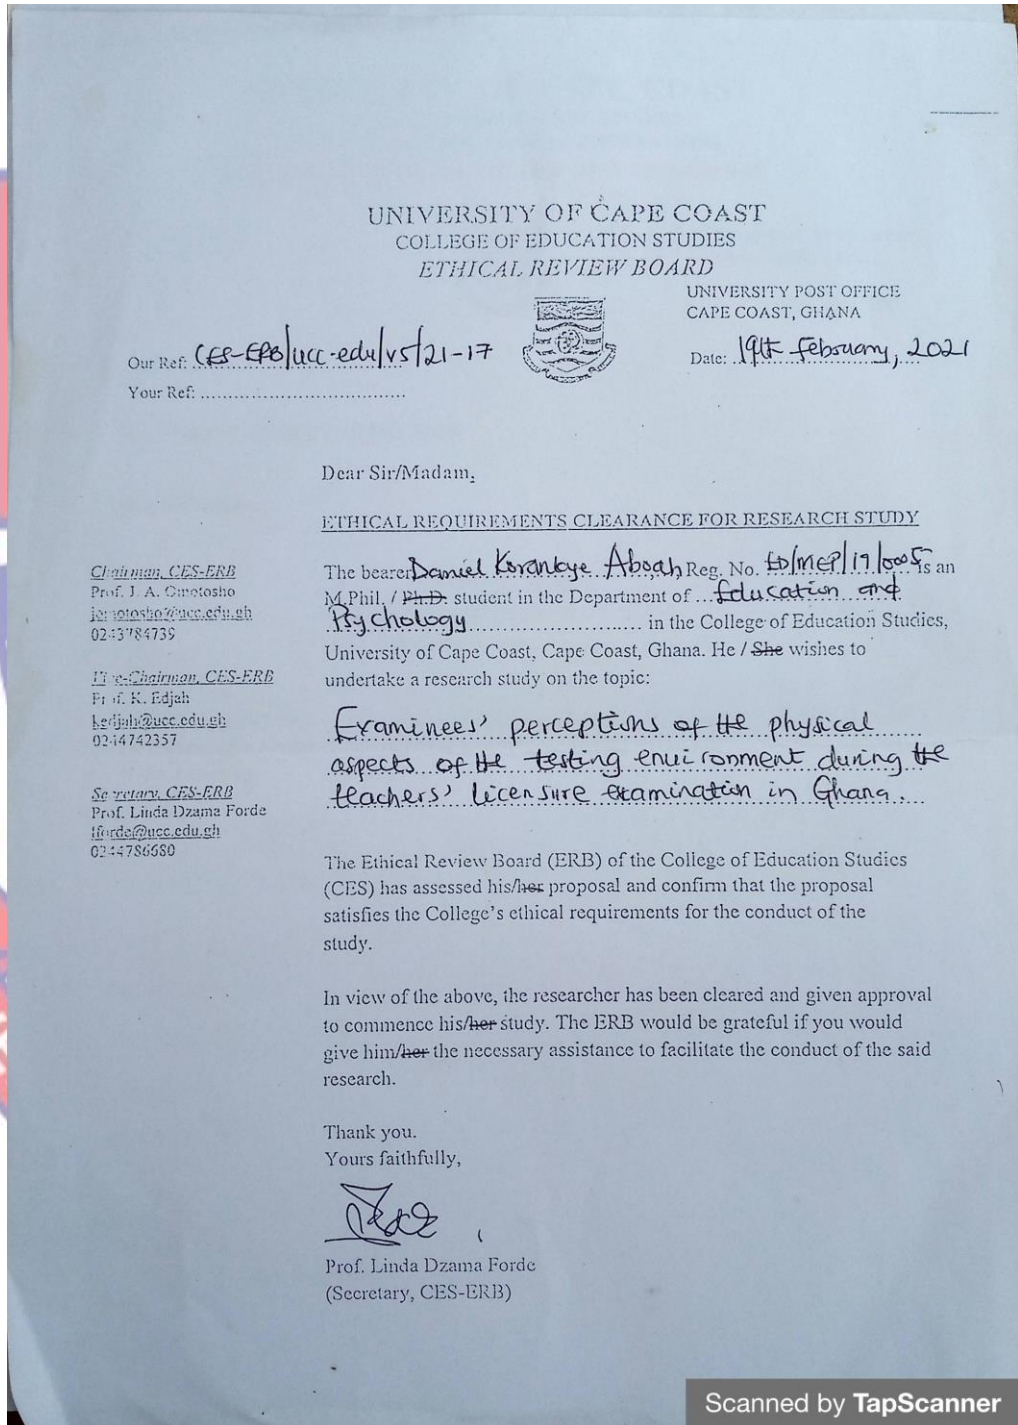 UNIVERSITY OF CAPE COAST
COLLEGE OF EDUCATION STUDIES
ETHICAL REVIEW BOARD
UNIVERSITY POST OFFICE
CAPE COAST, GHANA
Our Ref: CES-ERB/ucc-edu/v5/21-17
Date: 19th February, 2021
Your Ref: ....................................
Dear Sir/Madam,
ETHICAL REQUIREMENTS CLEARANCE FOR RESEARCH STUDY
Chairman, CES-ERB
Prof. J. A. Omotosho
jomotosho@ucc.edu.gh
0243784739
Vice-Chairman, CES-ERB
Prof. K. Edjah
kedjah@ucc.edu.gh
0244742357
Secretary, CES-ERB
Prof. Linda Dzama Forde
lforde@ucc.edu.gh
0244786680
The bearer Daniel Korankye Aboah, Reg. No. ED/MEP/19/0005 is an
M.Phil. / Ph.D. student in the Department of Education and
Psychology in the College of Education Studies,
University of Cape Coast, Cape Coast, Ghana. He / She wishes to
undertake a research study on the topic:
Examinees' perceptions of the physical
aspects of the testing environment during the
teachers' licensure examination in Ghana.
The Ethical Review Board (ERB) of the College of Education Studies
(CES) has assessed his/her proposal and confirm that the proposal
satisfies the College's ethical requirements for the conduct of the
study.
In view of the above, the researcher has been cleared and given approval
to commence his/her study. The ERB would be grateful if you would
give him/her the necessary assistance to facilitate the conduct of the said
research.
Thank you.
Yours faithfully,
Prof. Linda Dzama Forde
(Secretary, CES-ERB)
Scanned by TapScanner